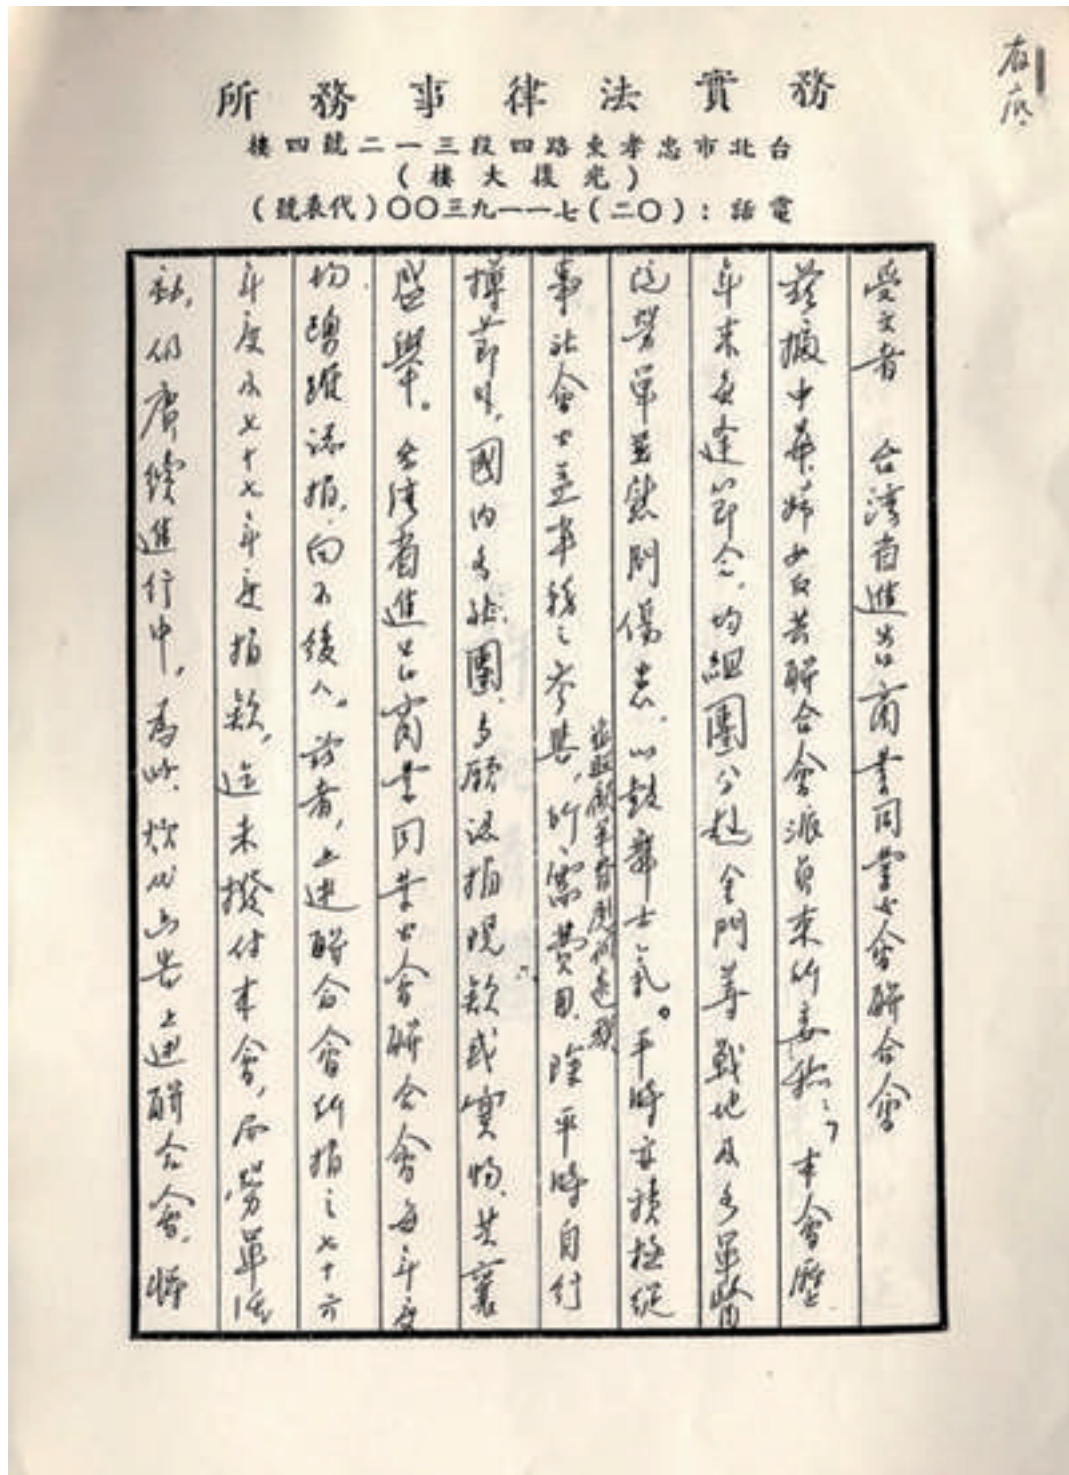 存底
務實法律事務所
台北市忠孝東路四段三一二號四樓
(光復大樓)
電話:(〇二)七一一九三〇〇(代表號)
受文者 台湾省進出口商業同業公會聯合會
茲據中華婦女反共聯合會派員來所委稱:「本會歷
年來每逢節令,均組團分赴金門等戰地及各軍醫
院勞軍並慰問傷患,以鼓舞士氣。平時亦積極從
事社會公益事務之參與,所需費用,除平時自行
撙節外,國內各社團,多願認捐現款或實物,共襄
盛舉。台湾省進出口商業同業公會聯合會每年度
均踴躍認捐,向不後人。詎者,上述聯合會所捐之七十六
年度及七十七年度捐款,迄未撥付本會,而勞軍活
動,仍賡續進行中,為此,煩代函告上述聯合會,將